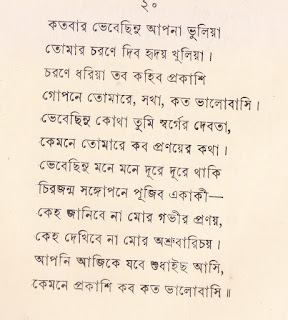 ২০
কতবার ভেবেছিনু আপনা ভুলিয়া
তোমার চরণে দিব হৃদয় খুলিয়া।
চরণে ধরিয়া তব কহিব প্রকাশি
গোপনে তোমারে, সখা, কত ভালোবাসি।
ভেবেছিনু কোথা তুমি স্বর্গের দেবতা,
কেমনে তোমারে কব প্রণয়ের কথা।
ভেবেছিনু মনে মনে দূরে দূরে থাকি
চিরজন্ম সঙ্গোপনে পূজিব একাকী—
কেহ জানিবে না মোর গভীর প্রণয়,
কেহ দেখিবে না মোর অশ্রুবারিচয়।
আপনি আজিকে যবে শুধাইছ আসি,
কেমনে প্রকাশি কব কত ভালোবাসি॥